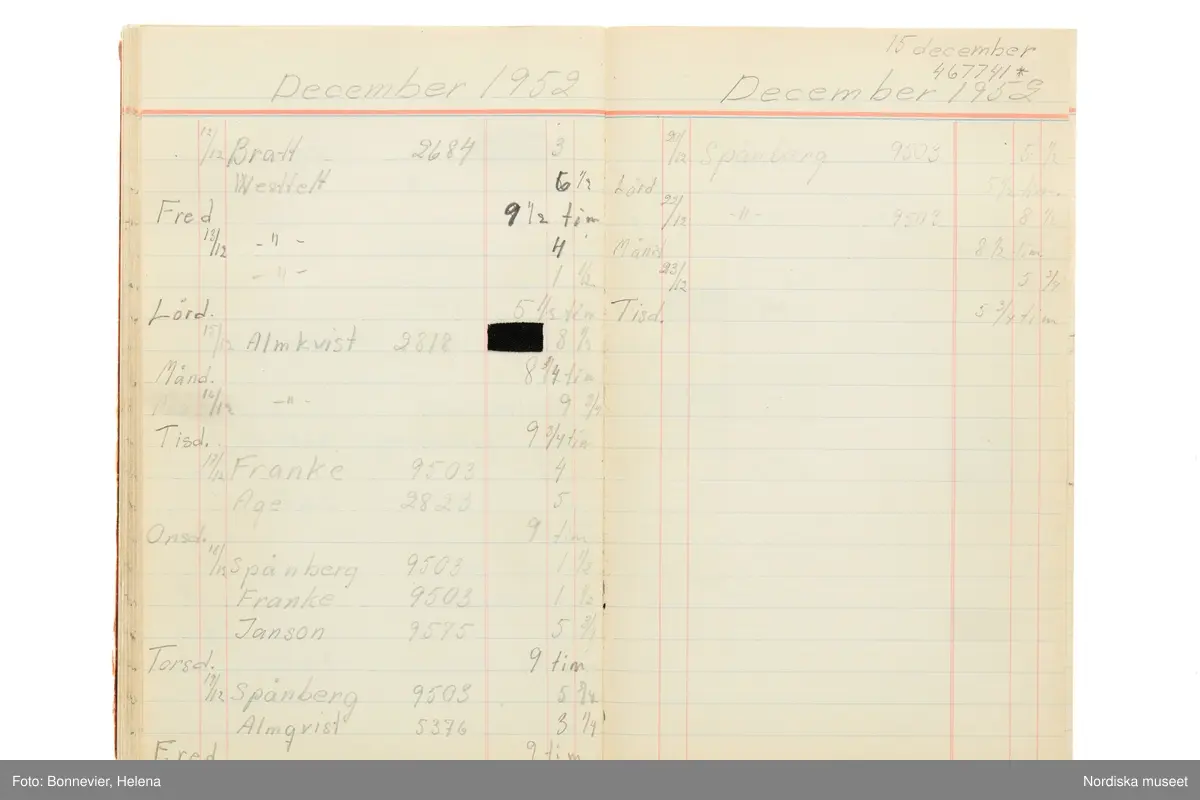 December 1952
12/12 Bratt 2684 3
Westfelt 6 1/2
Fred 9 1/2 tim
13/12 -"- 4
-"- 1 1/2
Lörd. 5 1/2 tim
15/12 Almkvist 2818 8 3/4
Månd. 8 3/4 tim
16/12 -"- 9 3/4
Tisd. 9 3/4 tim
17/12 Franke 9503 4
Age 2823 5
Onsd. 9 tim
18/12 Spånberg 9503 1 1/2
Franke 9503 1
Janson 9575 5 3/4
Torsd. 9 tim
19/12 Spånberg 9503 5 3/4
Almqvist 5376 3 1/4
Fred 9 tim
15 december
467741*
December 1952
20/12 Spånberg 9503 5 1/2
Lörd 5 1/2 tim
22/12 -"- 9503 8 1/2
Månd 8 1/2 tim
23/12 5 3/4
Tisd. 5 3/4 tim
Foto: Bonnevier, Helena
Nordiska museet